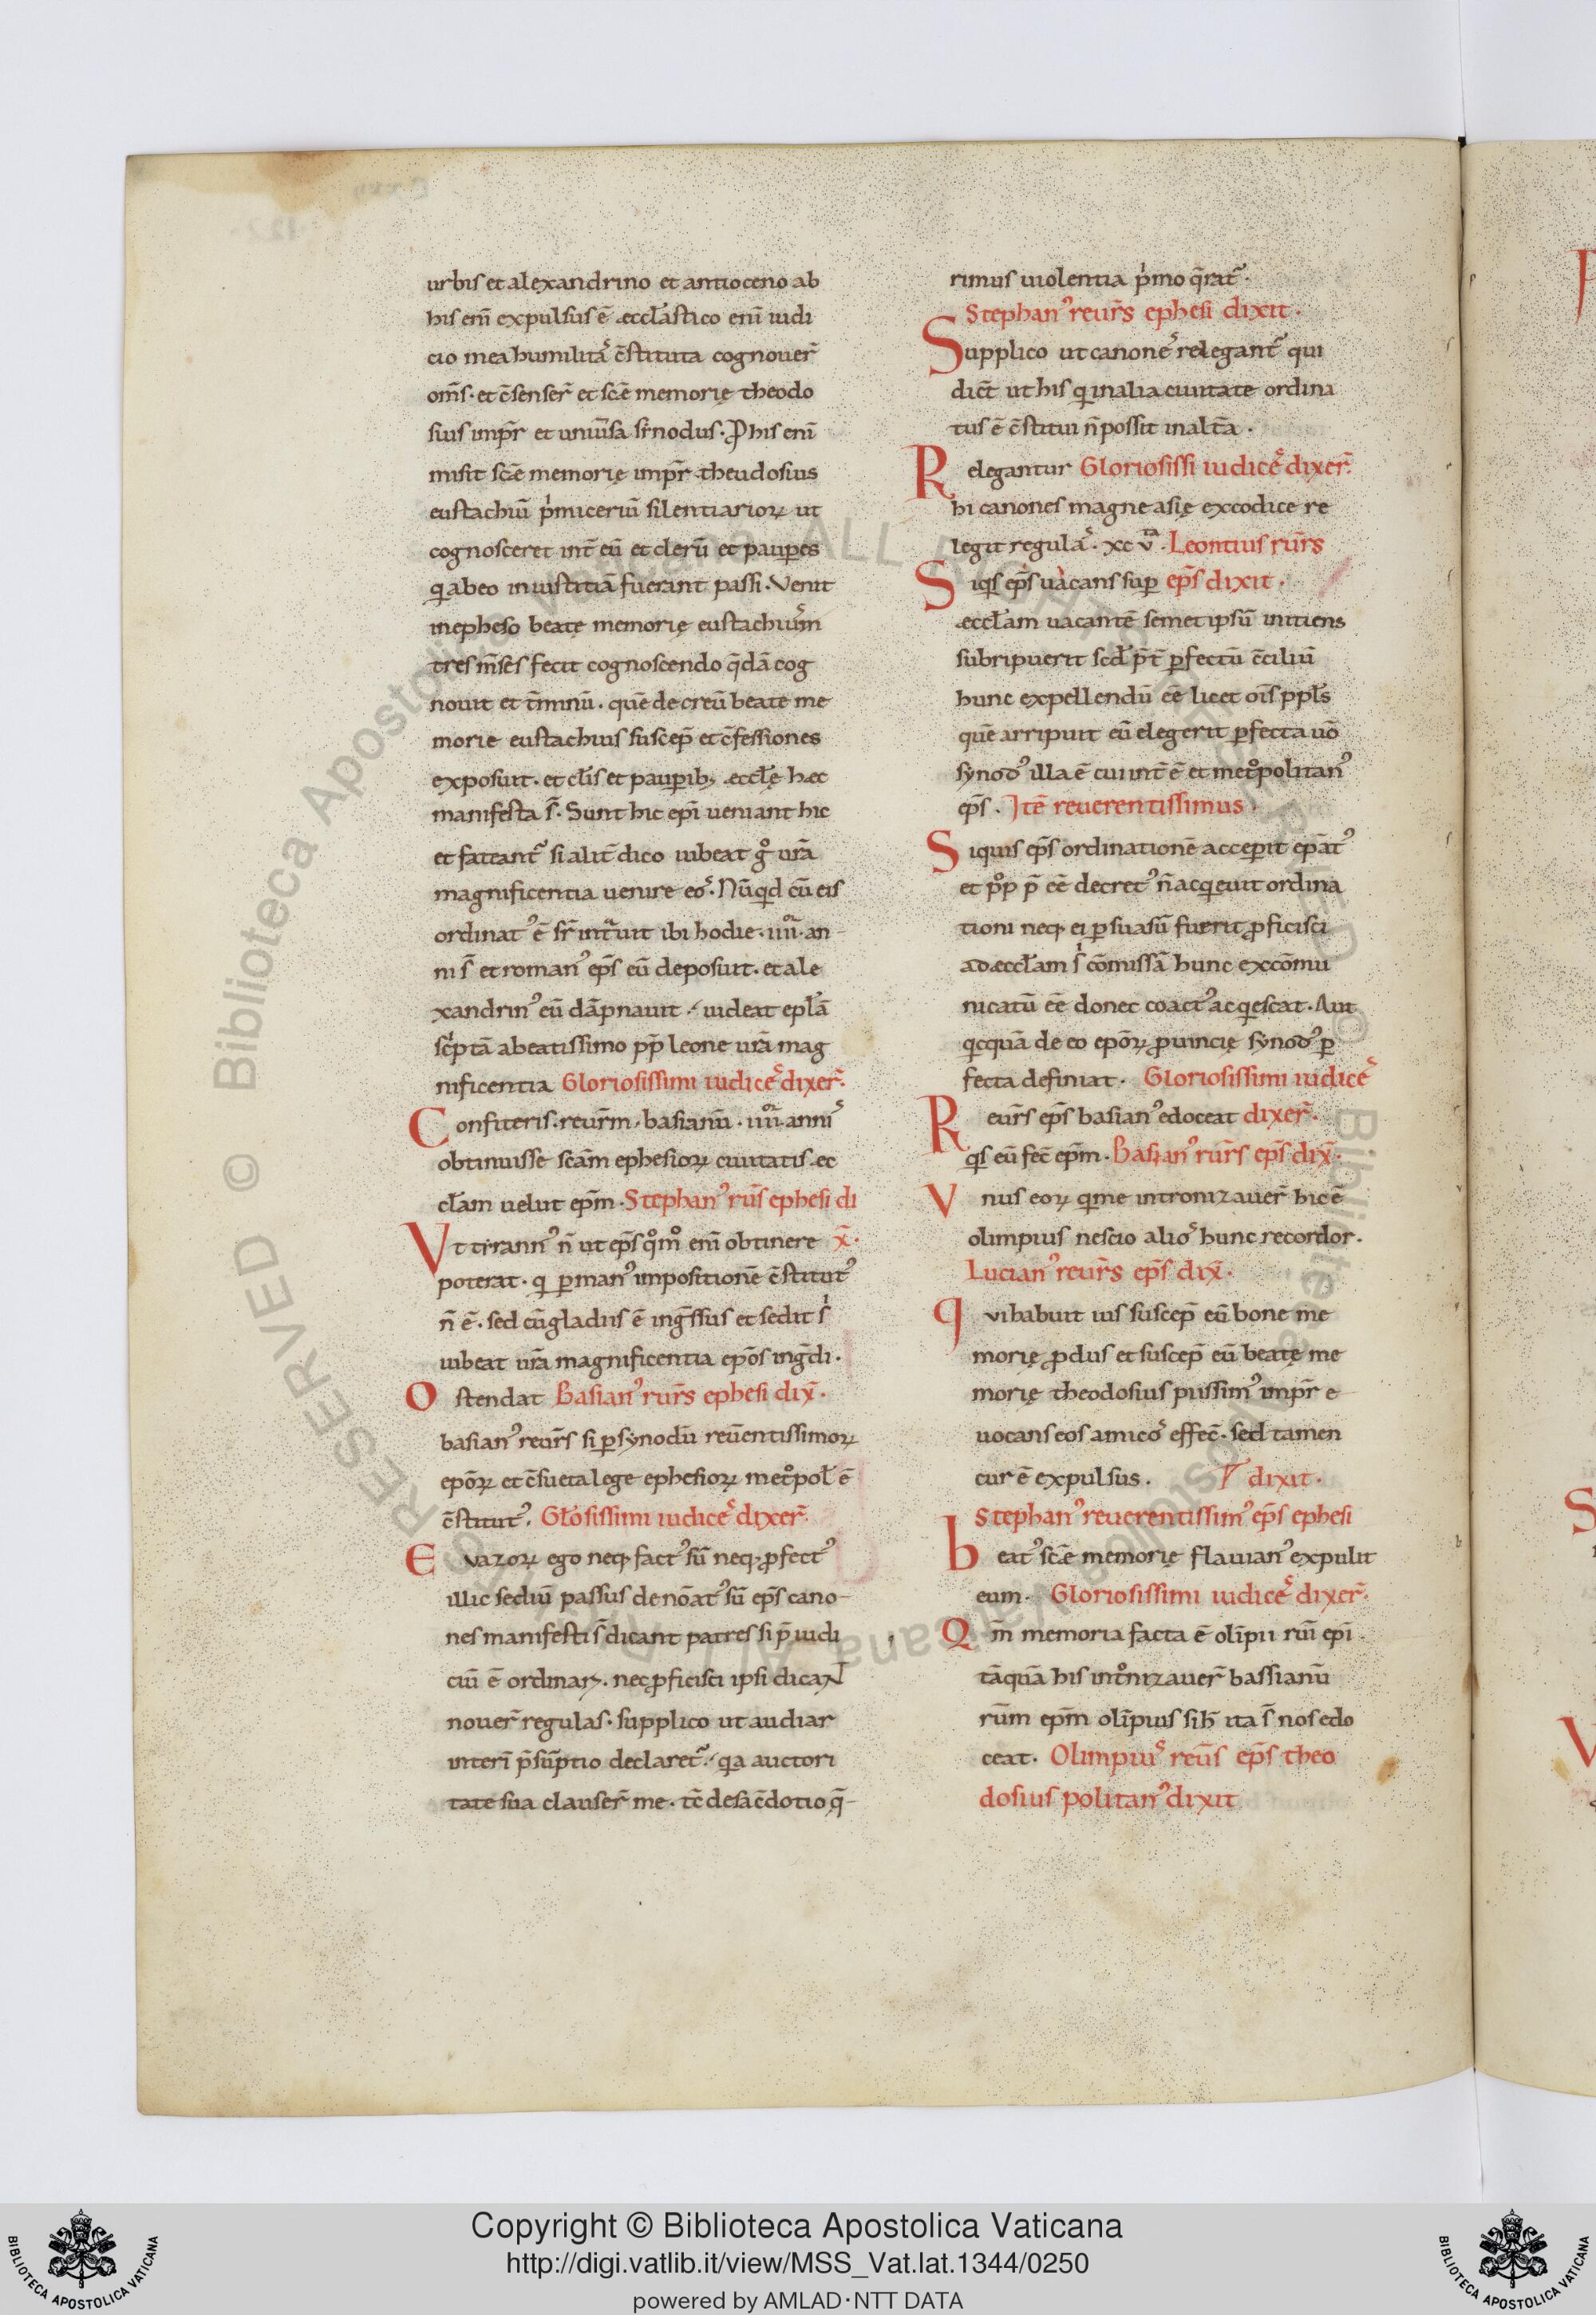 urbis et alexandrino et antioceno ab
his eni͂ expulsus ē æccłastico eni͂ iudi
cio mea humilitaˢ c̄stituta cognouer̄
om̄s · et c̄senser̄ et sc̄e memorię theodo
sius imp̄r et uniūsa sȳnodus · P his eni͂
misit sc̄e memorię imp̄r theudosius
eustachiū pⁱmiceriū silentiarioꝝ ut
cognosceret int̄ eū et clerū et pauꝑes
ꝗ ab eo iniustitiā fuerant passi · Venit
in epheso beatę memorię eustachiuˢm
tres m̄ses fecit cognoscendo q̄dā cog
nouit et t̄minū · quē decreū beate me
morie eustachius suscep̄ et c̄fessiones
exposuit · et cłis et pauꝑib; æccłę hæc
manifesta s̄ · Sunt hic ep̄i ueniant hic
et fateant᷑ si alit̄ dico iubeat gͦ ur̄a
magnificentia uenire eoˢ · Nūꝗd cū eis
ordinatꝰ ē sr̄ int̄uit ibi hodie · iiiiᵒʳ · an-
ni s̄ et romanꝰ ep̄s eū deposuit · et ale
xandrinꝰ eū dāpnauit · uideat epłā
scⁱptā a beatissimo pp̄ leone ur̄a mag
nificentia Gloriosissimi iudiceˢ dixer̄ ·
Confiteris · reur̄m · basianū · iiiiᵒʳ · anniˢ
obtinuisse sc̄am ephesioꝝ ciuitatis æc
cłam uelut ep̄m · Stephanꝰ rūs ephesi di
Vt tirannꝰ n̄ ut ep̄s qͦmͦ eni͂ obtinere x̄ ·
poterat · ꝗ ꝑ manꝰ impositionē c̄stitutꝰ
n̄ ē · sed cū gladiis ē inḡssus et sedit sⁱ
iubeat ur̄a magnificentia ep̄os inḡdi ·
Ostendat Basianꝰ rur̄s ephesi dix̄ ·
basianꝰ reur̄s si ꝑ synodū reūentissimoꝝ
ep̄oꝝ et c̄sueta lege ephesioꝝ metͦpoł ē
c̄stitutꝰ · Głosissimi iudiceˢ dixer̄
Euazoꝝ ego neq; factꝰ sū neq; ꝓfectꝰ
illic sediū passus denōatꝰ sū ep̄s cano-
nes manifesti s̄ dicant patres si p̄ iudi
ciū ē ordinaꝝ · nec ꝓficisci ipsi dicaNT
nouer̄ regulas · supplico ut audiar
interi͂ p̄sūptio declaret᷑ · ꝗa auctori
tate sua clauser̄ me · tc̄ de sac̄dotio q̄-
rimus uiolentia pⁱmo q̄rat᷑ ·
Stephanꝰ reur̄s ephesi dixit ·
Supplico ut canoneˢ relegant᷑ qui
dict̄ ut his ꝗ in alia ciuitate ordina
tus ē c̄stitui n̄ possit in alt̄a ·
Relegantur Gloriosissi iudiceˢ dixer̄ ·
hi canones magne asię ex codice re
legit regulaˢ · xc v̄ᵃ · Leontius rur̄s
Siqis ep̄s uacans suꝑ ep̄s dixit ·
æccłam uacantē semet ipsū initiens
subripuerit scd̄ p̄t̄ ꝑfectū c̄ciliū
hunc expellendū eē licet oīs ppłs
quē arripuit eū elegerit ꝑfecta uō
synodꝰ illa ē cui int̄ ē et metͦpolitanꝰ
ep̄s · Itē reuerentissimus ·
Siquis ep̄s ordinationē acceperit ep̄atꝰ
et pͦp p̄ eē decretꝰ n̄ acꝗeuit ordina
tioni neq; ei ꝑsuasū fuerit ꝓficisci
ad æccłam sⁱ cōmissā hunc excōmu
nicatū eē donec coactꝰ acꝗescat · Aut
ꝗcquā de eo ep̄oꝝ ꝓuincię synodꝰ ꝑ
fecta definiat · Gloriosissimi iudiceˢ
Reur̄s ep̄s basianꝰ edoceat dixer̄ ·
ꝗs eū fec̄ ep̄m · Basianꝰ rur̄s ep̄s dix̄ ·
Vnus eoꝝ ꝗ me intronizauer̄ hic ē
olimpius nescio alioˢ hunc recordor ·
Lucianꝰ reur̄s ep̄s dix̄ ·
qui habuit ius suscep̄ eū bone me
morię ꝓdus et suscep̄ eū beatę me
morię theodosius piissimꝰ imp̄r e
uocans eos amicoˢ effec̄ · sed tamen
cur ē expulsus · dixit ·
Stephanꝰ reuerentissimꝰ ep̄s ephesi
beatꝰ sc̄e memorię flauianꝰ expulit
eum · Gloriosissimi iudiceˢ dixer̄ ·
Qm̄ memoria facta ē oli͂pii rui͂ ep̄i ·
tāquā his intͦnizauer̄ bassianū
rūm ep̄m oli͂pius siƀ ita s̄ nos edo
ceat · Olimpiuˢ reūs ep̄s theo
dosius politanꝰ dixit
Copyright © Biblioteca Apostolica Vaticana
http://digi.vatlib.it/view/MSS_Vat.lat.1344/0250
powered by AMLAD·NTT DATA